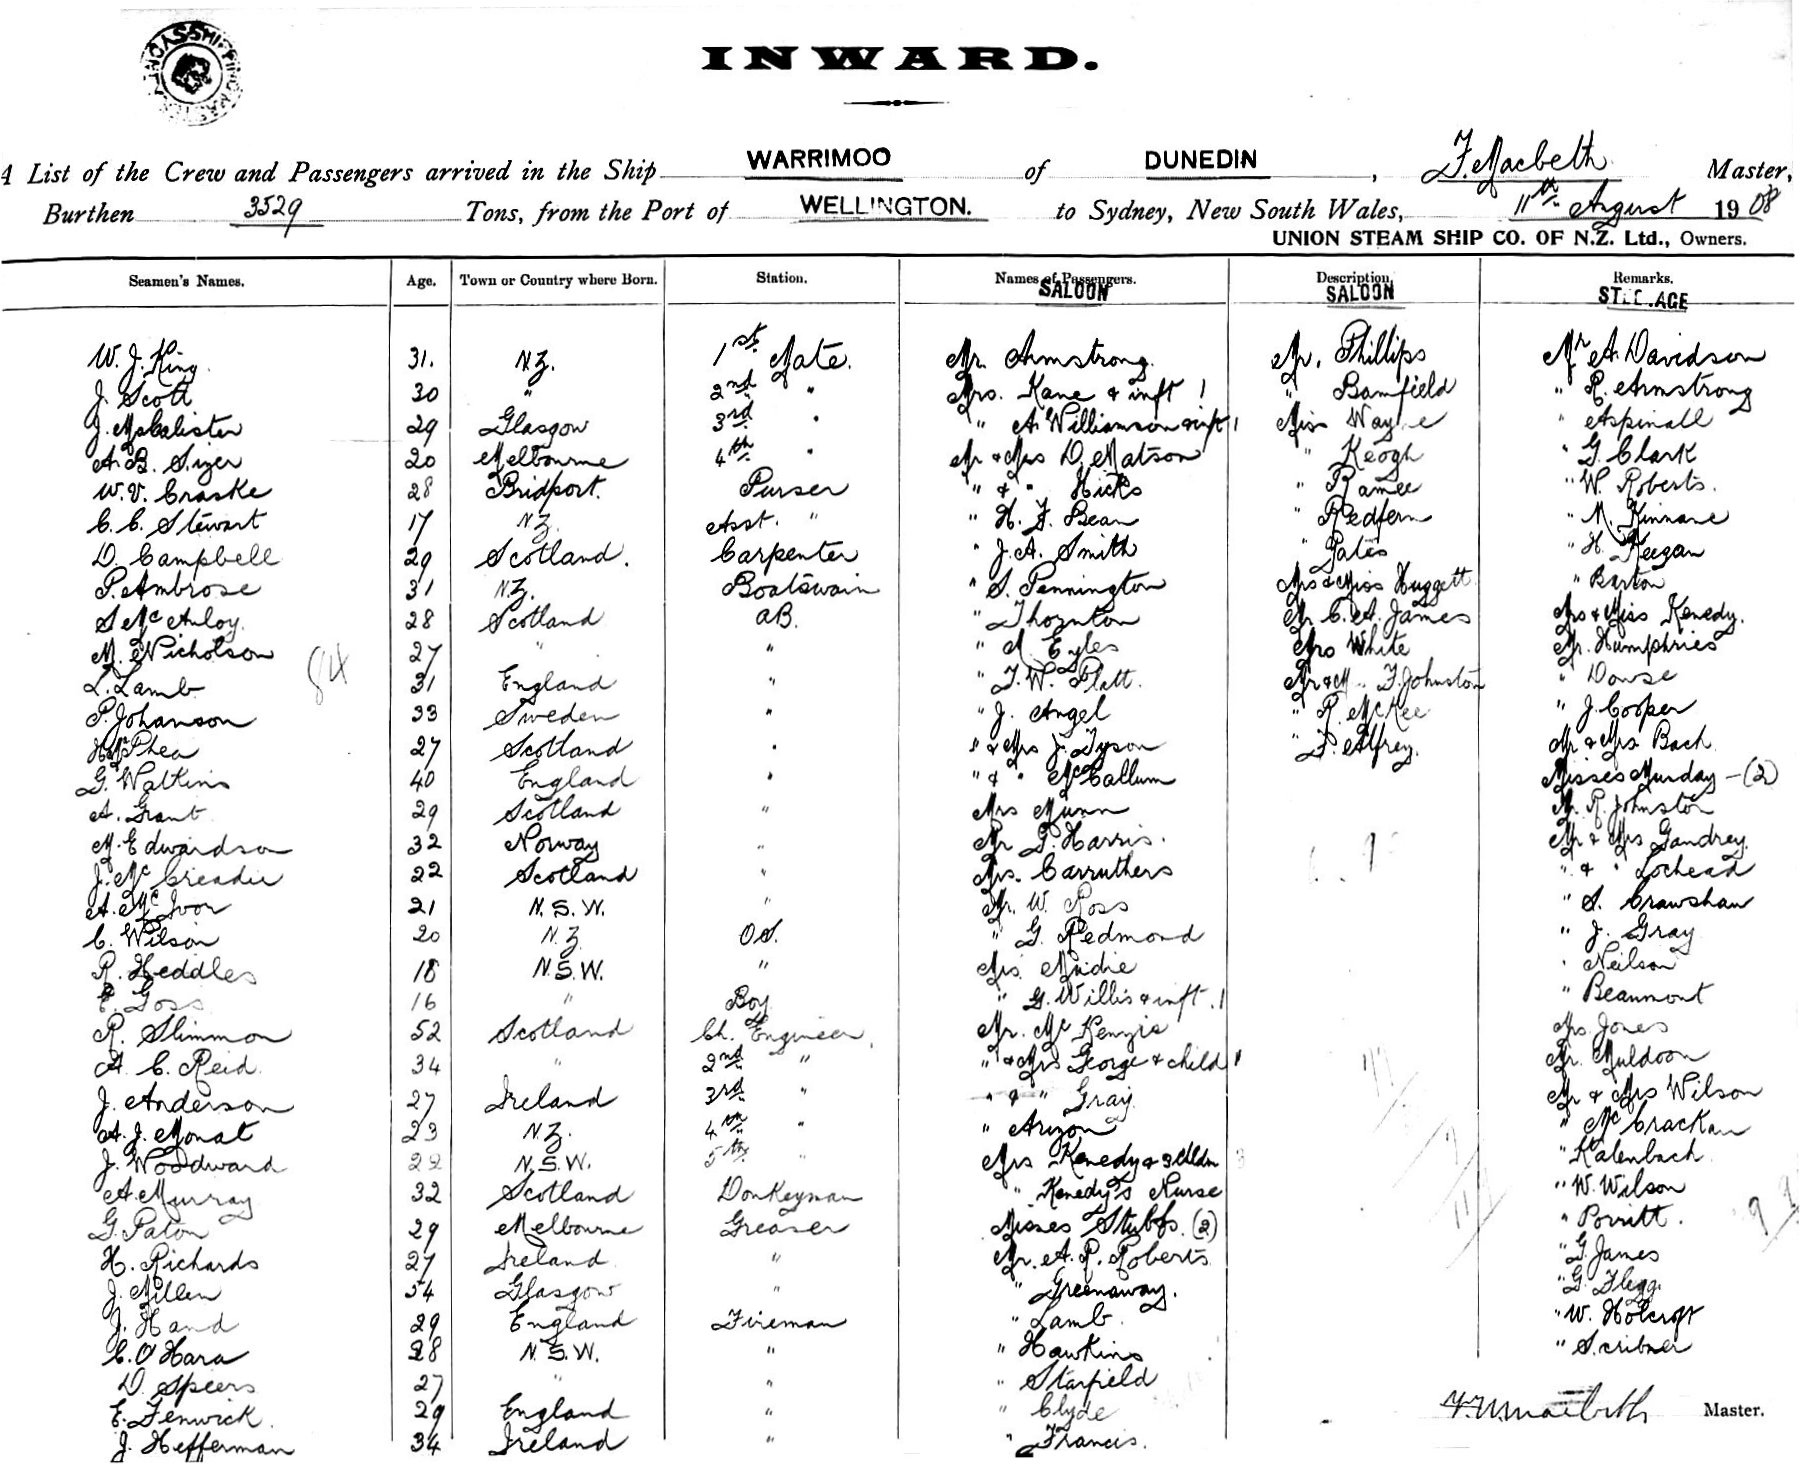 INWARD.
A List of the Crew and Passengers arrived in the Ship WARRIMOO of DUNEDIN, F. Macbeth Master,
Burthen 3529 Tons, from the Port of WELLINGTON. to Sydney, New South Wales, 11th August 1908
UNION STEAM SHIP CO. OF N.Z. Ltd., Owners.
Seamen's Names. Age. Town or Country where Born. Station. Names of Passengers. Description. Remarks.
SALOON SALOON
W. J. King 31. N.Z. 1st Mate. Mr. Armstrong. Mr. Phillips Mr A. Davidson
J. Scott 30 " 2nd " Mrs. Kane & inft 1 " Bamfield " R. Armstrong
J. McCalister 29 Glasgow 3rd " " A. Williamson & inft 1 Miss Wayne " Aspinall
A. B. Sizer 20 Melbourne 4th " Mr & Mrs D. Matson " Keogh " G. Clark
W. V. Craske 28 Bridport. Purser " & " Hicks " Ramee " W. Roberts.
C. C. Stewart 17 N.Z. Asst. " " H. F. Bean " Redfern " M. Kinnane
D. Campbell 29 Scotland. Carpenter " J. A. Smith " Pates " H. Keegan
P. Ambrose 31 N.Z. Boatswain " S. Pennington Mrs & Miss Huggett " Barton
S McAuloy 28 Scotland AB. " Thornton Mr C. A. James Mrs & Miss Kenedy.
M. Nicholson 27 " " " A. Eyles Mrs White Mr. Humphries
84
L. Lamb 31 England " " T. W. Platt. Mr & M F. Johnston " Dowse
P. Johanson 33 Sweden " " J. Angel " R. McKee " J. Cooper
H. McPhea 27 Scotland " " & Mrs J. Tyson " F. Alfrey. Mr & Mrs Bach
G. Watkins 40 England " " & " McCallum Misses Munday - (2)
A. Grant 29 Scotland " Mrs Munn Mr. R. Johnston
M. Edwardson 32 Norway " Mr G. Harris. Mr & Mrs Gandrey.
J. McCreadie 22 Scotland " Mrs. Carruthers " & " Lochead
A. McIvor 21 N.S.W. " Mr. W. Ross " S. Crawshaw
C. Wilson 20 N.Z. O.S. " G. Redmond " J. Gray
R. Heddles 18 N.S.W. " Mrs Mudie " Neilson
E. Goss 16 " Boy " G. Willis & inft. 1 " Beaumont
R. Slimmon 52 Scotland Ch. Engineer. Mr. McKenzie Mrs Jones
A. C. Reid. 34 " 2nd " " & Mrs George & child 1 Mr. Muldoon
J. Anderson 27 Ireland 3rd " " & " Gray Mr & Mrs Wilson
A. J. Monat 23 N.Z. 4th " " Arizon " McCrackan
J. Woodward 22 N.S.W. 5th " Mrs Kenedy & 3 Chldn 3 " Kalenbach
A. Murray 32 Scotland Donkeyman " Kenedy's Nurse " W. Wilson
G. Paton 29 Melbourne Greaser Misses Stubbs. (2) " Porritt.
H. Richards 27 Ireland " Mr. A. R. Roberts " G. James
J. Millen 54 Glasgow " " Greenaway. " G. Flegg.
J. Hand 29 England Fireman " Lamb. " W. Holcroft
C. O'Hara 28 N.S.W. " " Hawkins " Scribner
D. Speers 27 " " " Starfield
E. Fenwick. 29 England " " Clyde Master.
J. Hefferman 34 Ireland " " Francis.